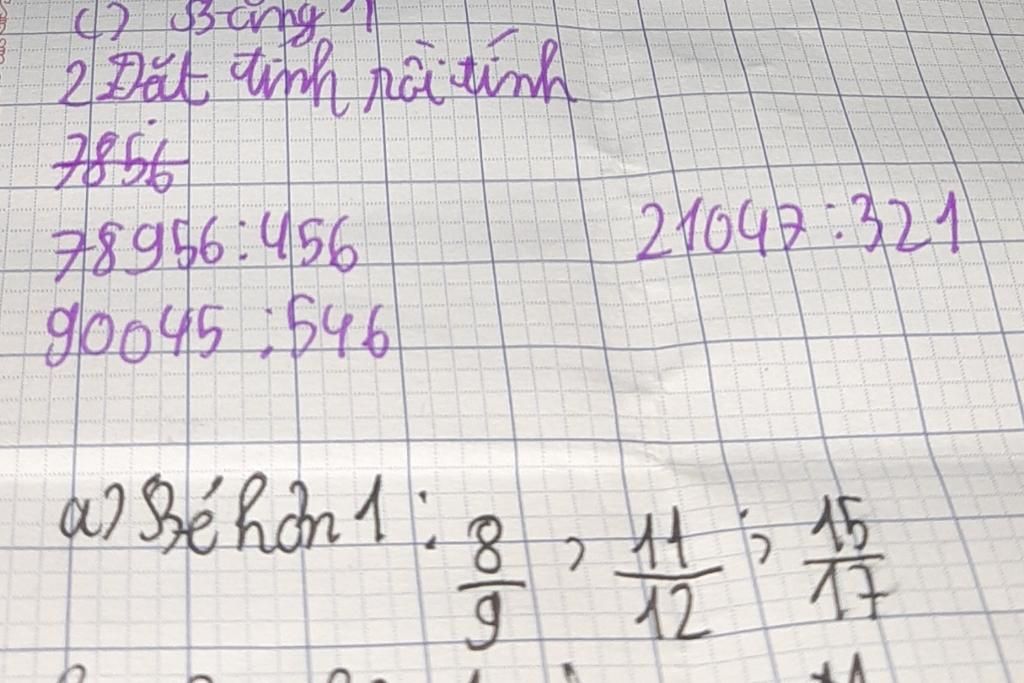 c) Bằng 1
2 Đặt tính rồi tính
7856
78956:456 21047:321
90045:546
a) Bé hơn 1: 8/9, 11/12; 15/17